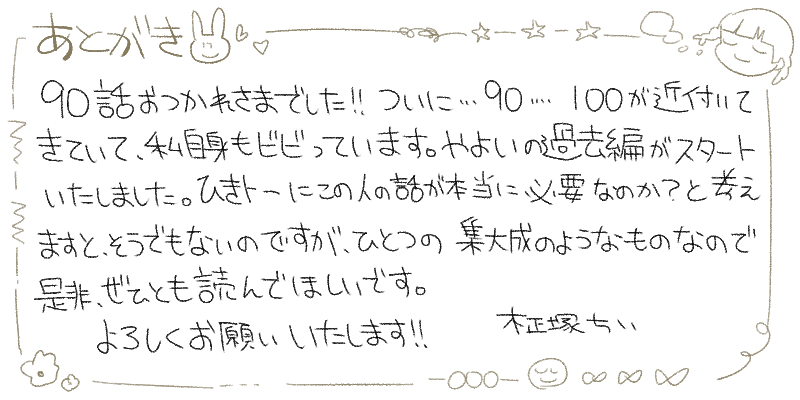 あとがき
90話おつかれさまでした!! ついに…90… 100が近付いて
きていて、私自身もビビっています。やよいの過去編がスタート
いたしました。ひきトーにこの人の話が本当に必要なのか?と考え
ますと、そうでもないのですが、ひとつの集大成のようなものなので
是非、ぜひとも読んでほしいです。
よろしくお願いいたします!!
柾塚ちい